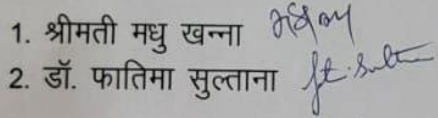 1. श्रीमती मधु खन्ना
2. डॉ. फातिमा सुल्ताना